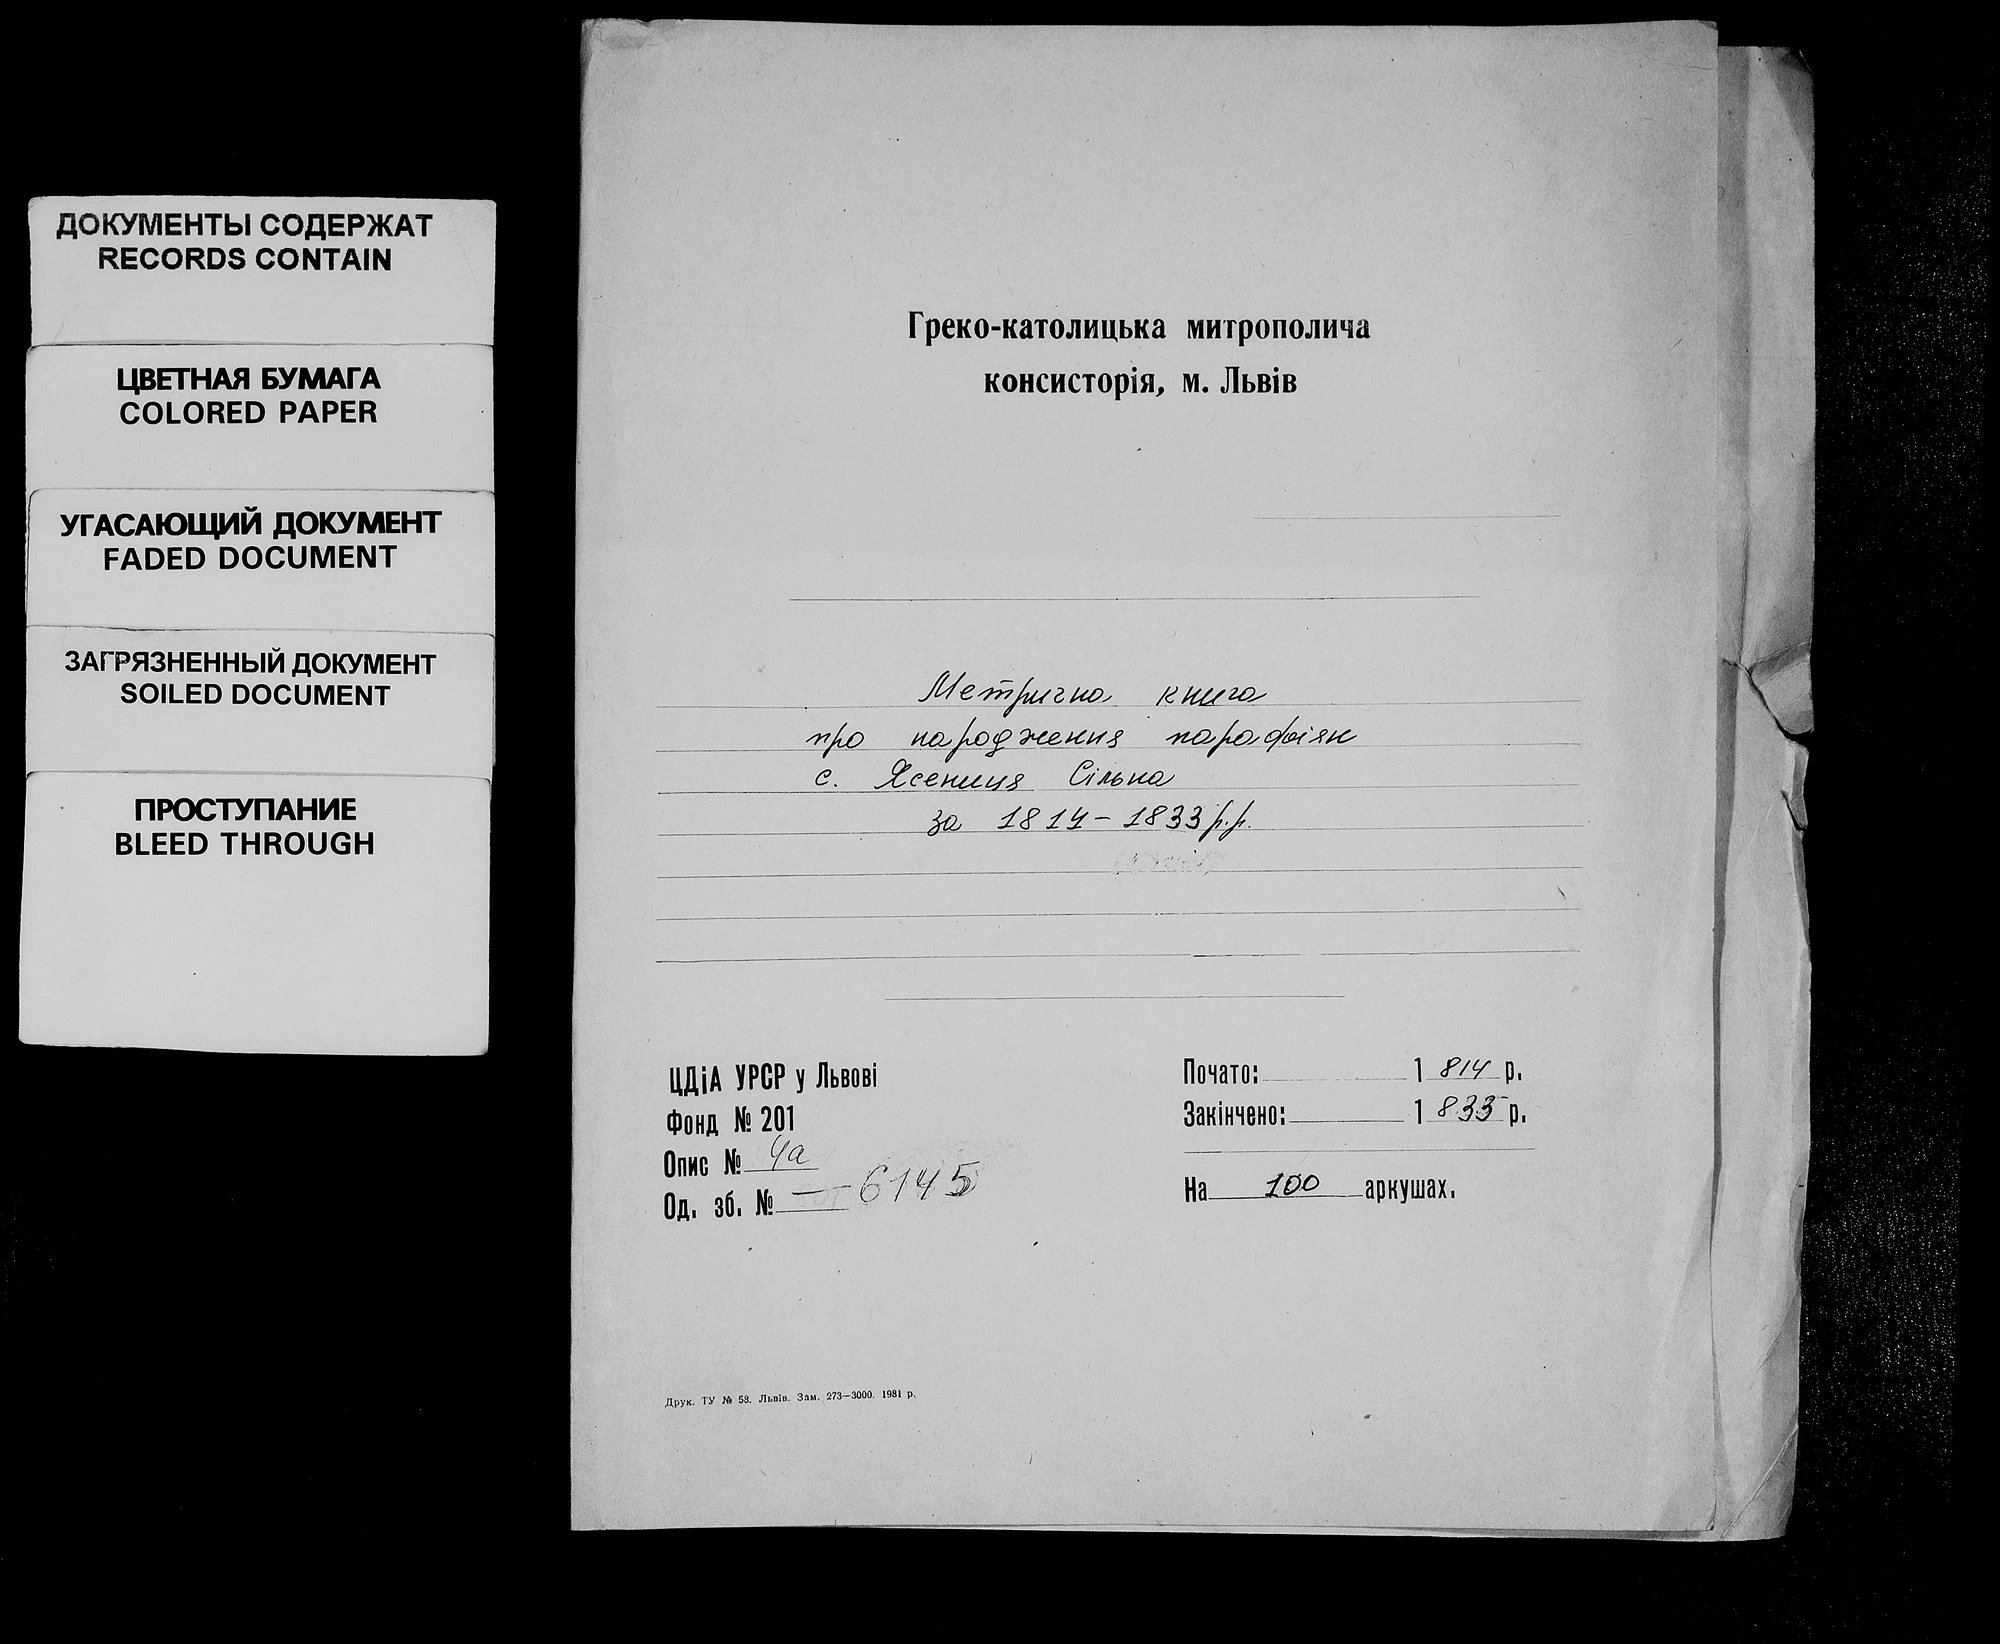 ДОКУМЕНТЫ СОДЕРЖАТ
RECORDS CONTAIN
ЦВЕТНАЯ БУМАГА
COLORED PAPER
УГАСАЮЩИЙ ДОКУМЕНТ
FADED DOCUMENT
ЗАГРЯЗНЕННЫЙ ДОКУМЕНТ
SOILED DOCUMENT
ПРОСТУПАНИЕ
BLEED THROUGH
Греко-католицька митрополича
консисторія, м. Львів
Метрична книга
про народження парафіян
с. Ясениця Сільна
за 1814-1833 р.р.
ЦДіА УРСР у Львові
Фонд № 201
Опис № 4а
Од. зб. № 6145
Почато: 1814 р.
Закінчено: 1833 р.
На 100 аркушах.
Друк. ТУ № 58. Львів. Зам. 273—3000. 1981 р.